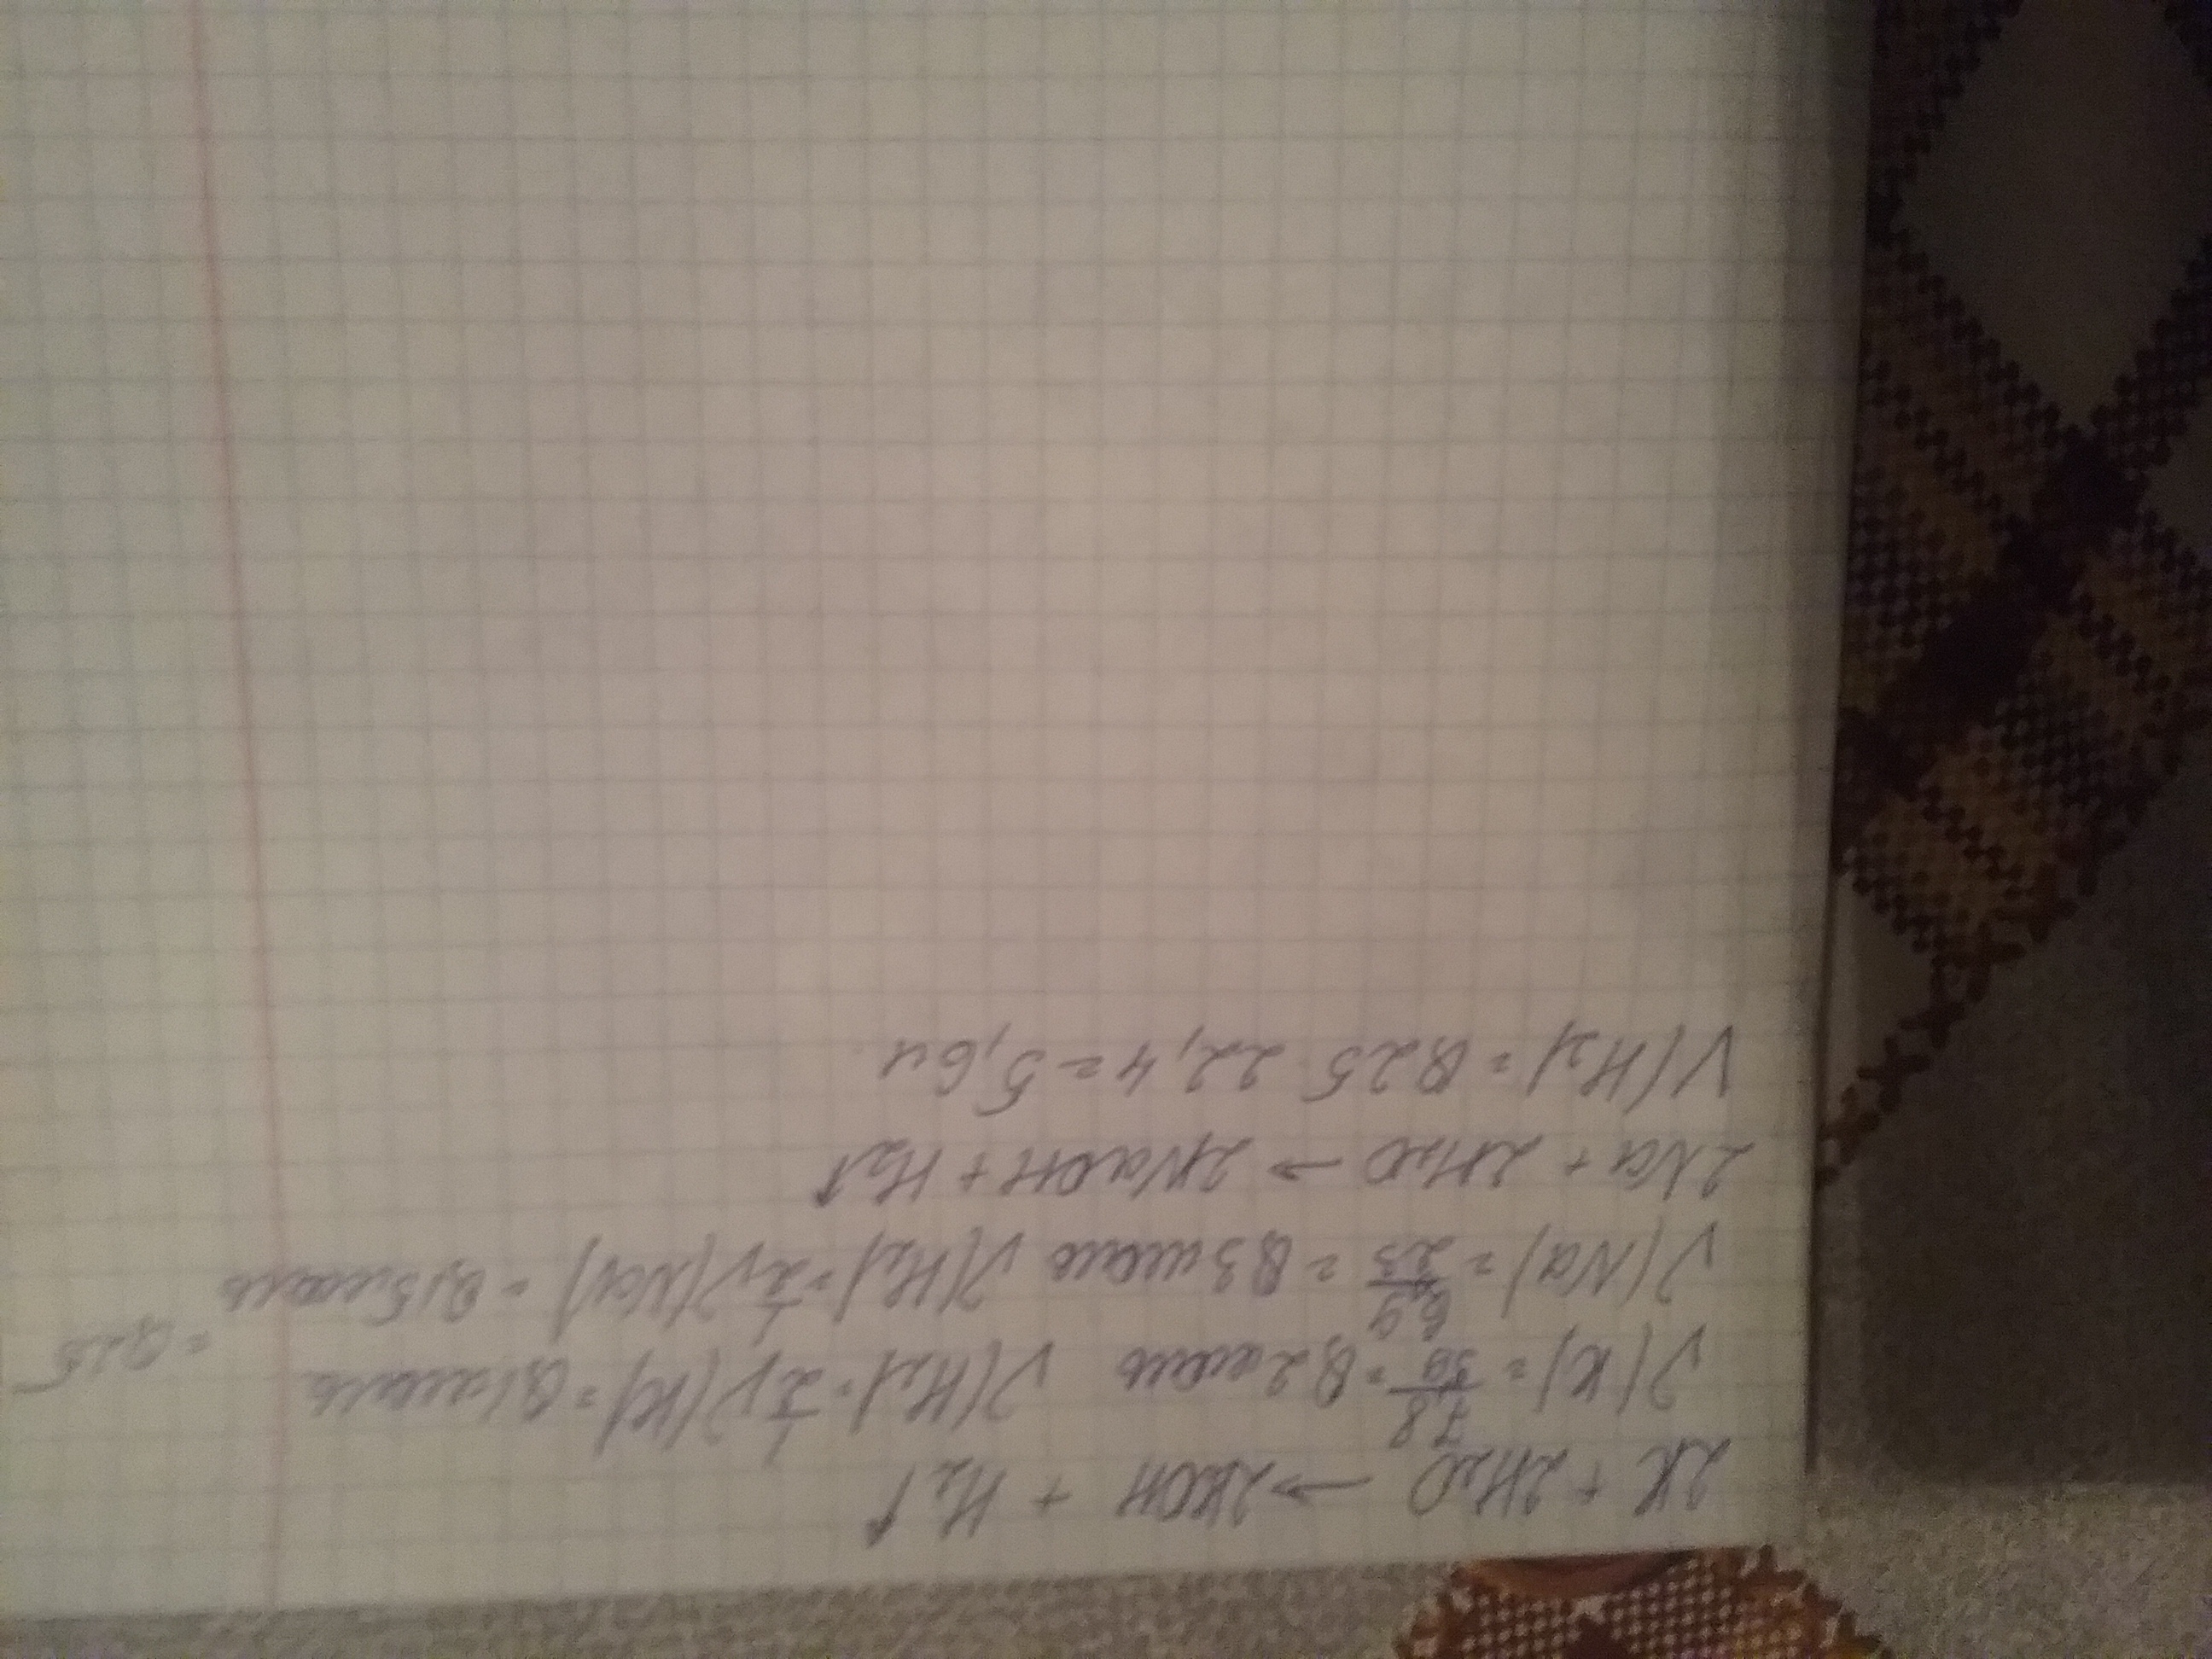 2K + 2H₂O → 2KOH + H₂↑
ν(K) = 7,8/39 = 0,2 моль ν(H₂) = 1/2 ν(K) = 0,1 моль
= 0,25
ν(Na) = 6,9/23 = 0,3 моль ν(H₂) = 1/2 ν(Na) = 0,15 моль
2Na + 2H₂O → 2NaOH + H₂↑
V(H₂) = 0,25 · 22,4 = 5,6 л